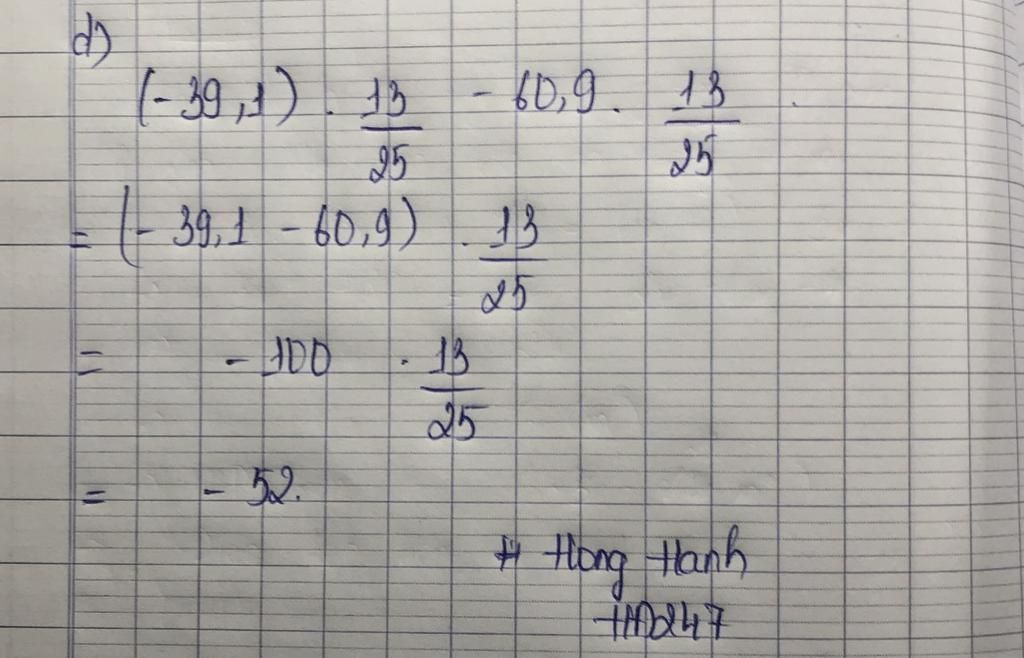 d)
(-39,1) . 13/25 - 60,9 . 13/25
= (- 39,1 - 60,9) . 13/25
= - 100 . 13/25
= - 52.
# Hong Hanh